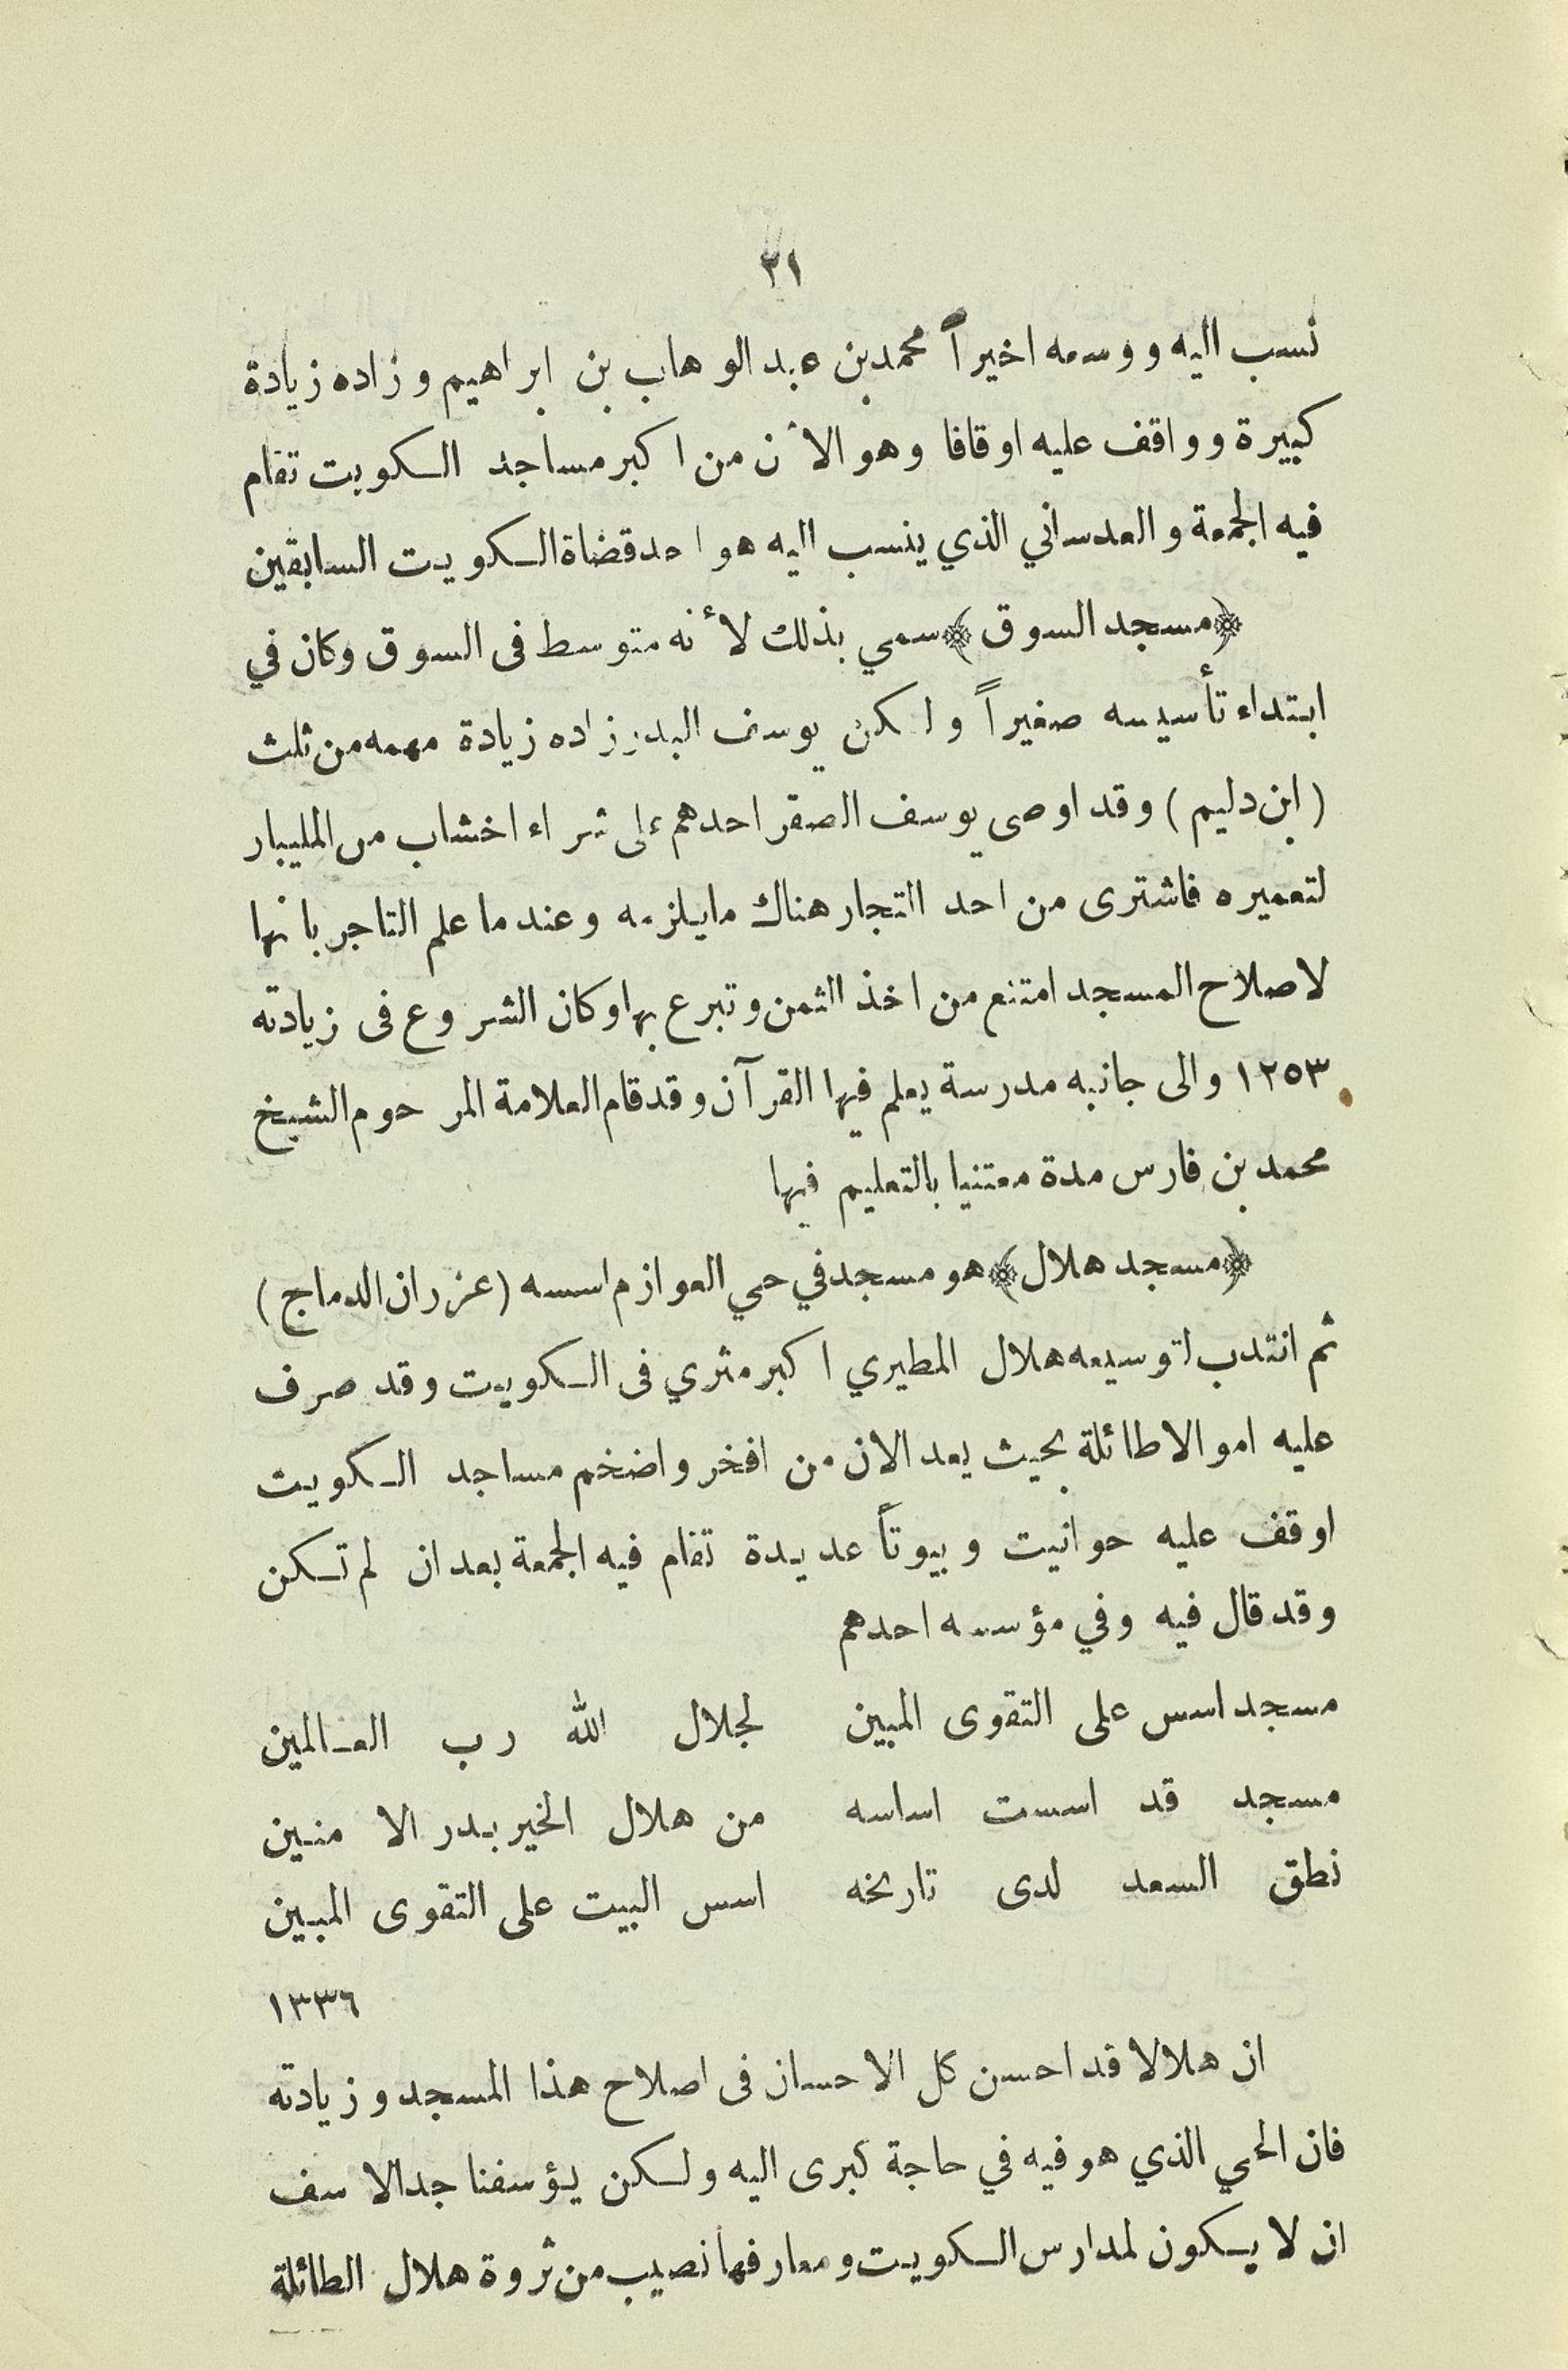 ٣١
نسب اليه ووسعه اخيراً محمد بن عبد الوهاب بن ابراهيم وزاده زيادة
كبيرة وواقف عليه اوقافا وهو الأن من اكبر مساجد الكويت تقام
فيه الجمعة والعدساني الذي ينسب اليه هو احد قضاة الكويت السابقين
﴿مسجد السوق﴾ سمي بذلك لأنه متوسط فى السوق وكان في
ابتداء تأسيسه صغيراً ولكن يوسف البدر زاده زيادة مهمه من ثلث
(ابن دليم) وقد اوصى يوسف الصقر احدهم على شراء اخشاب من المليبار
لتعميره فاشترى من احد التجار هناك مايلزمه وعندما علم التاجر بانها
لاصلاح المسجد امتنع من اخذ الثمن وتبرع بها وكان الشروع فى زيادته
١٢٥٣ والى جانبه مدرسة يعلم فيها القرآن وقد قام العلامة المرحوم الشيخ
محمد بن فارس مدة معتنيا بالتعليم فيها
﴿مسجد هلال﴾ هو مسجد في حي العوازم اسسه (عزران الدماج)
ثم انتدب لتوسيعه هلال المطيري اكبر مثري فى الكويت وقد صرف
عليه اموالا طائلة بحيث يعد الان من افخر واضخم مساجد الكويت
اوقف عليه حوانيت وبيوتاً عديدة تقام فيه الجمعة بعد ان لم تكن
وقد قال فيه وفي مؤسسه احدهم
مسجد اسس على التقوى المبين لجلال الله رب العالمين
مسجد قد اسست اساسه من هلال الخير بدر الامنين
نطق السعد لدى تاريخه اسس البيت على التقوى المبين
١٣٣٦
ان هلالا قد احسن كل الاحسان فى اصلاح هذا المسجد وزيادته
فان الحي الذي هو فيه في حاجة كبرى اليه ولكن يؤسفنا جد الاسف
ان لا يكون لمدارس الكويت ومعارفها نصيب من ثروة هلال الطائلة